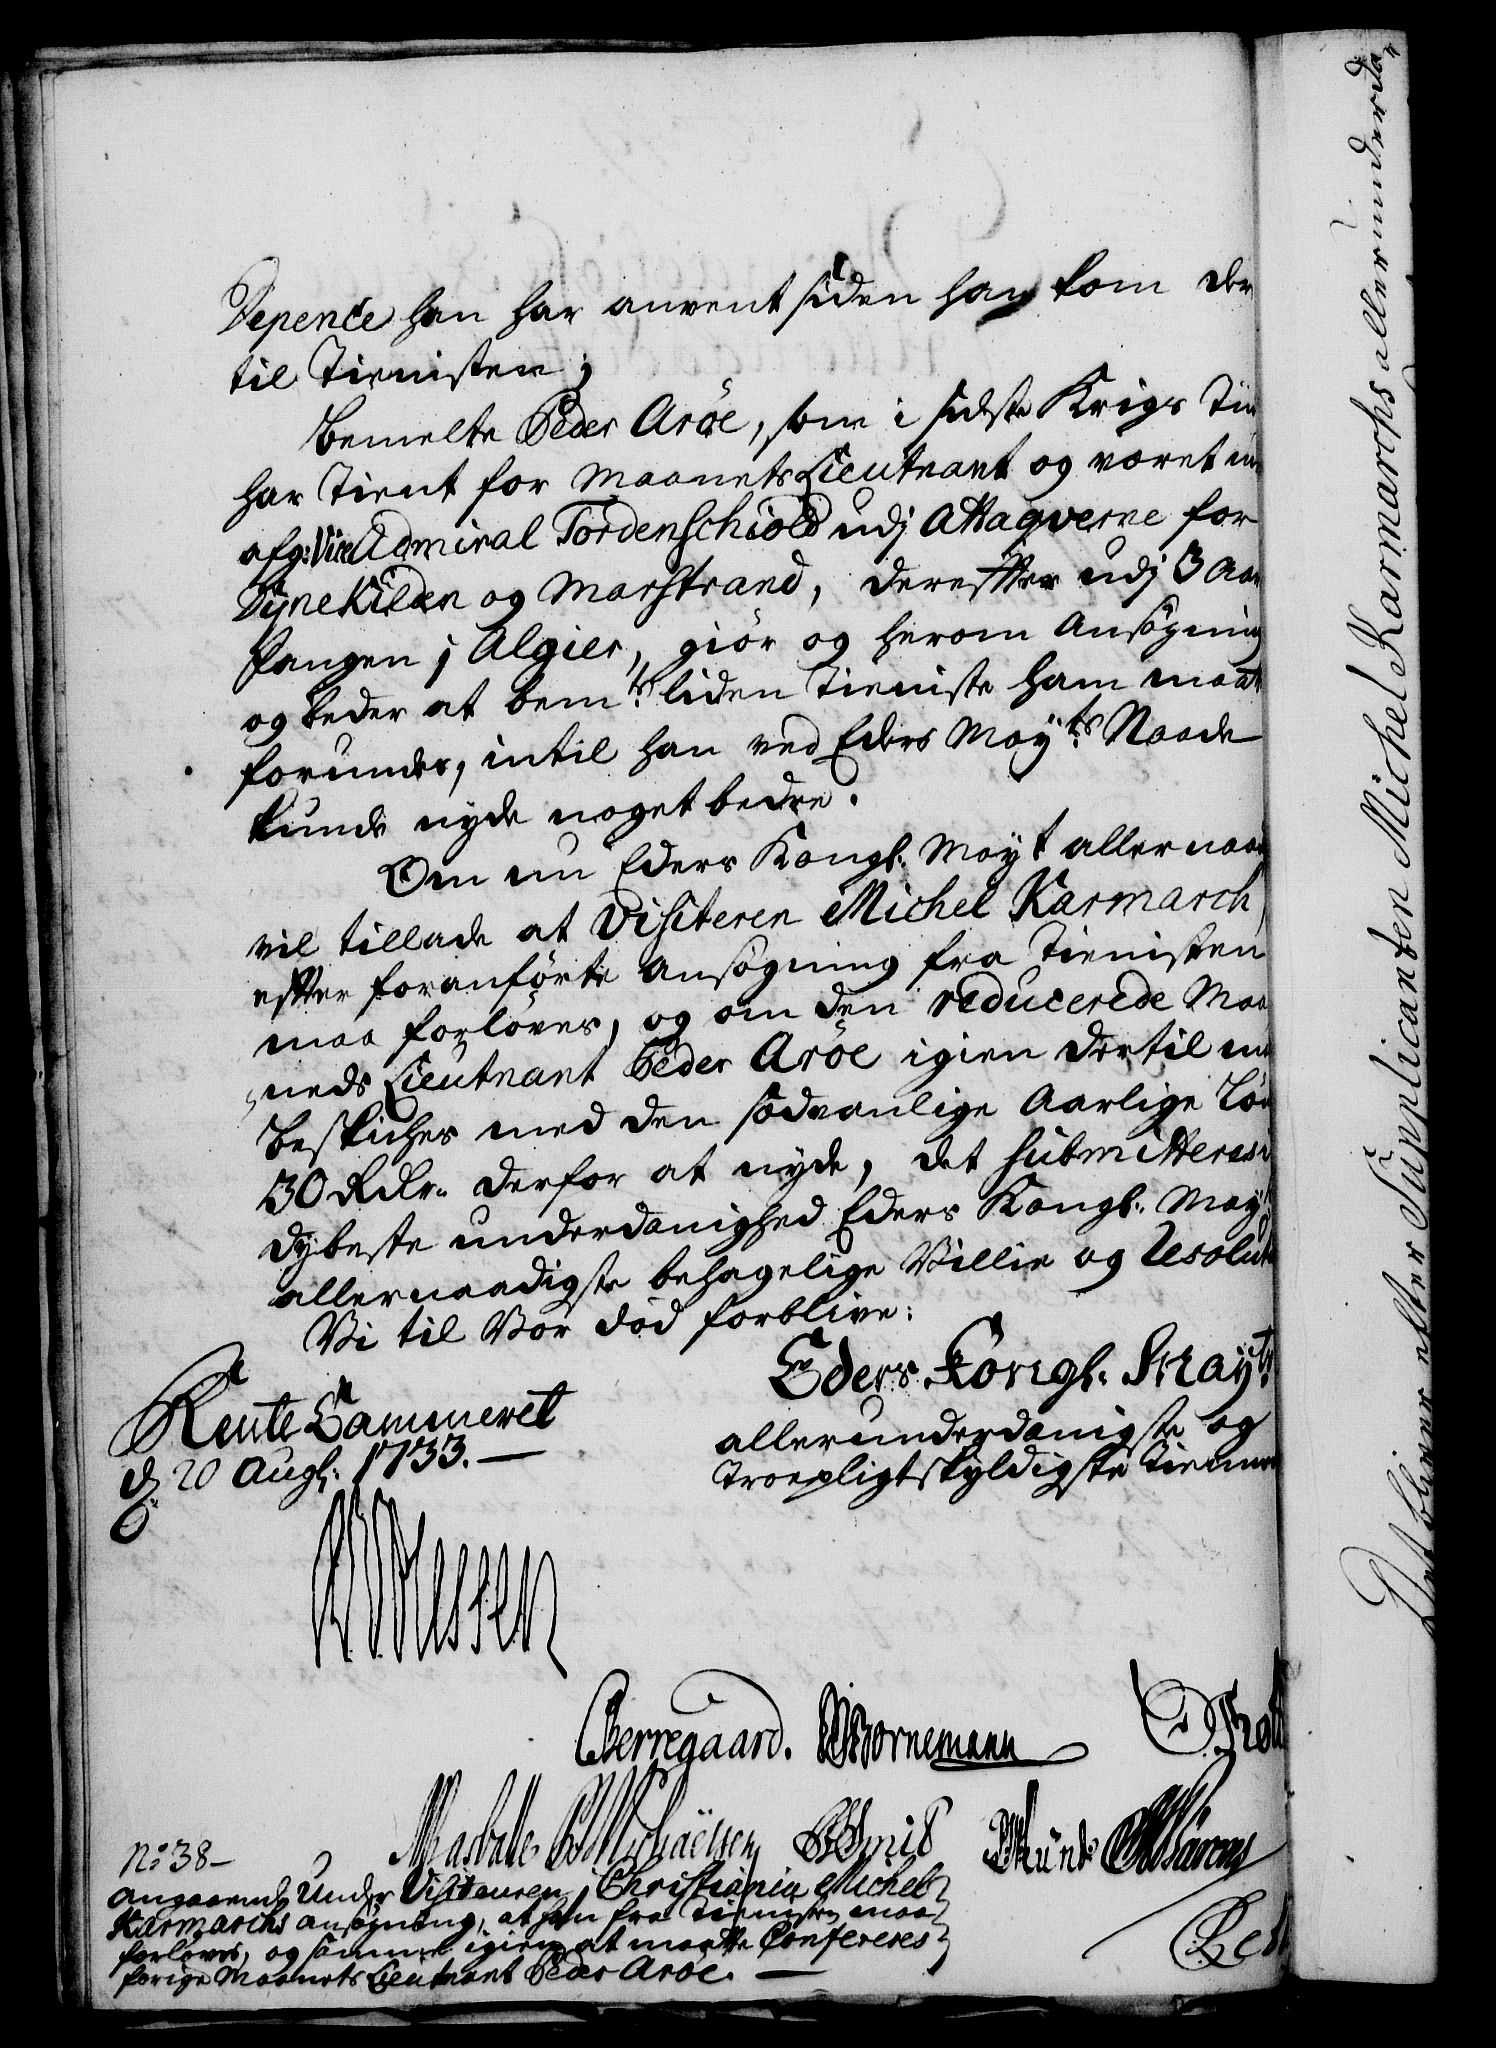 Depence han har anvent siden han kom der
til Tienisten;
Bemelte Peder Aröe, som i sidste Krigs Tiid
har tient for Maanets Lieutnant og været un
afg: Vice Admiral Tordenschiold udj Attaqverne for
Dynekilen og Marstrand, derefter udj 3 Aar
fangen j Algier, giör og herom Ansögning
og beder at bemte liden Tieniste ham maat
forundes, intil han ved Eders Mayts Naade
kunde nyde noget bedre.
Om nu Eders Kongl. Mayt allernaad
vil tillade at Visiteren Michel Karmarch
efter foranförte Ansögning fra Tienisten
maa forloves, og om den reducerede Maa
neds Lieutnant Peder Aröe igien dertil maa
beskiches med den sædvanlige Aarlige Lön
30 Rdr. derfor at nyde, det submitteres i
dybeste underdanighed Eders Kongl. May
allernaadigste behagelige Villie og Resolut
Vi til Vor död forblive:
Eders Kongl. Mayts
Rente Cammeret
d. 20 Augl. 1733.
allerunderdanigste og
Troepligtskyldigste Tienner
Berregaard. Bornemann
N: 38
Angaaende Under Visiteuren i Christiania Michel
Karmarchs ansögning, at han fra Tienisten maa
forloves, og samme igien at maatte Confereres
forige Maanets Lieutnant Peder Aröe.
Det bliver efter Supplicanten Michel Karmarchs allerunderda